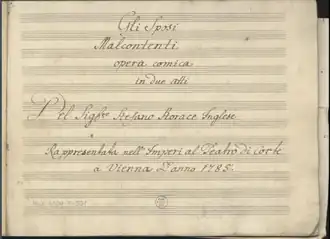 Gli Sposi
Malcontenti
opera comica
in due atti
Del Sigre Stefano Storace Inglese
Rappresentata nell'Imperial Teatro di Corte
a Vienna L'anno 1785.